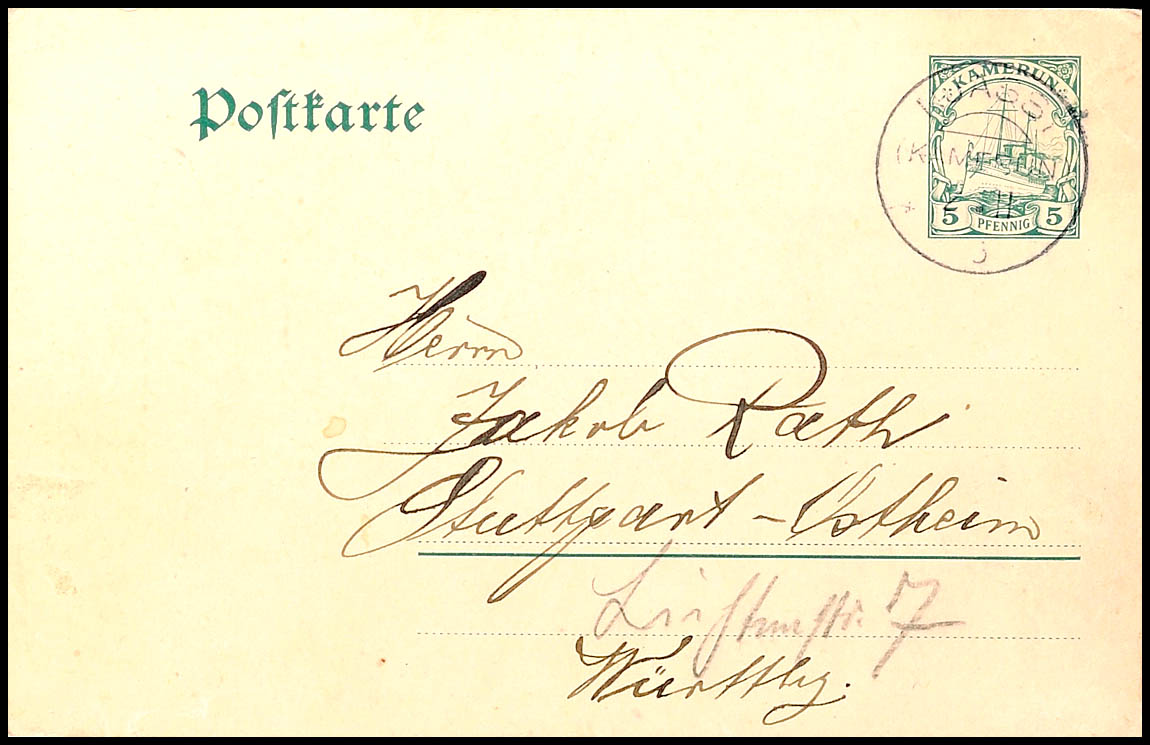 Postkarte
KAMERUN
5 PFENNIG 5
(KAMERUN
Herrn
Jakob Rath
Stuttgart-Ostheim
7
Württbg.